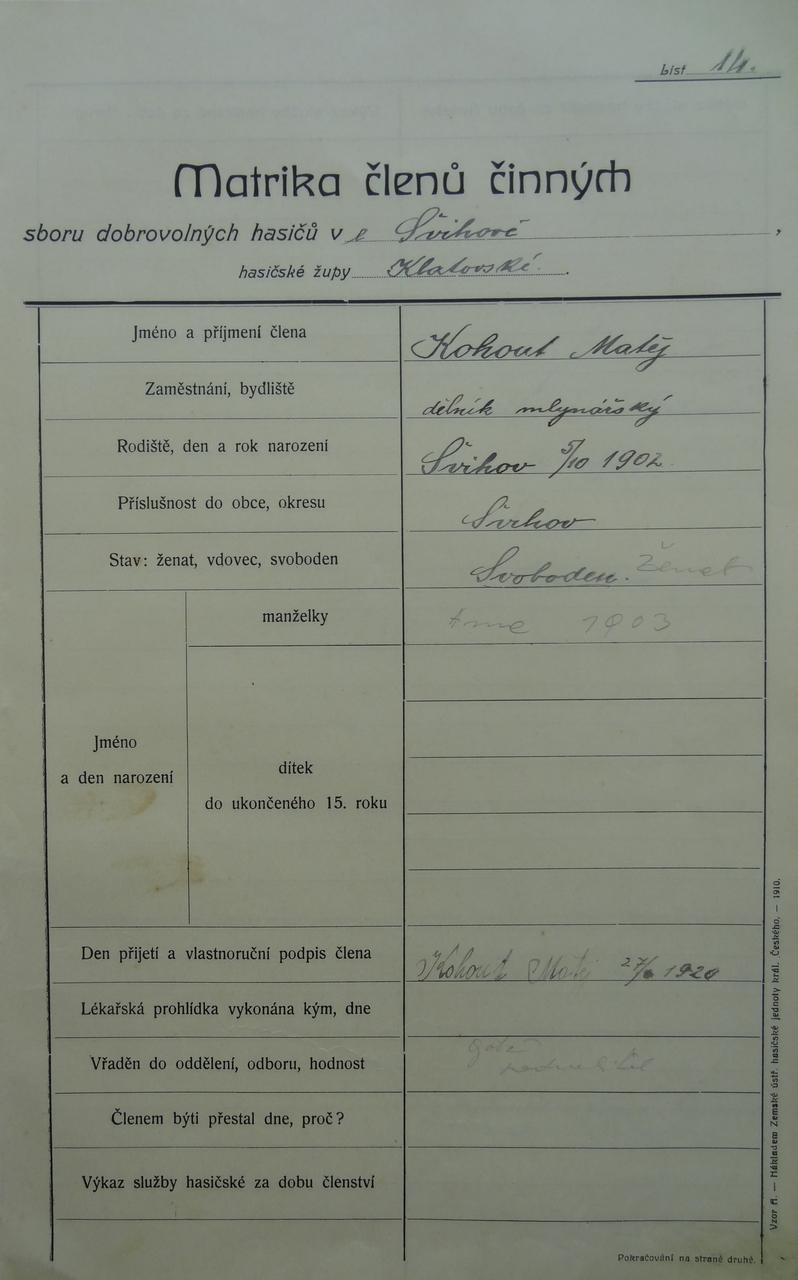 List 14.
Matrika členů činných
sboru dobrovolných hasičů v e Švihově,
hasičské župy Klatovské.
Jméno a příjmení člena Kohout Matěj
Zaměstnání, bydliště dělník mlynářský
Rodiště, den a rok narození Švihov 5/10 1902
Příslušnost do obce, okresu Švihov
Stav: ženat, vdovec, svoboden Svoboden. Ženat
manželky 1903
Jméno
a den narození
dítek
do ukončeného 15. roku
Den přijetí a vlastnoruční podpis člena Kohout Matěj 27/6 1920
Lékařská prohlídka vykonána kým, dne
Vřaděn do oddělení, odboru, hodnost
Členem býti přestal dne, proč?
Výkaz služby hasičské za dobu členství
Pokračování na straně druhé.
Vzor A. — Nákladem Zemské ústř. hasičské jednoty král. Českého. — 1910.